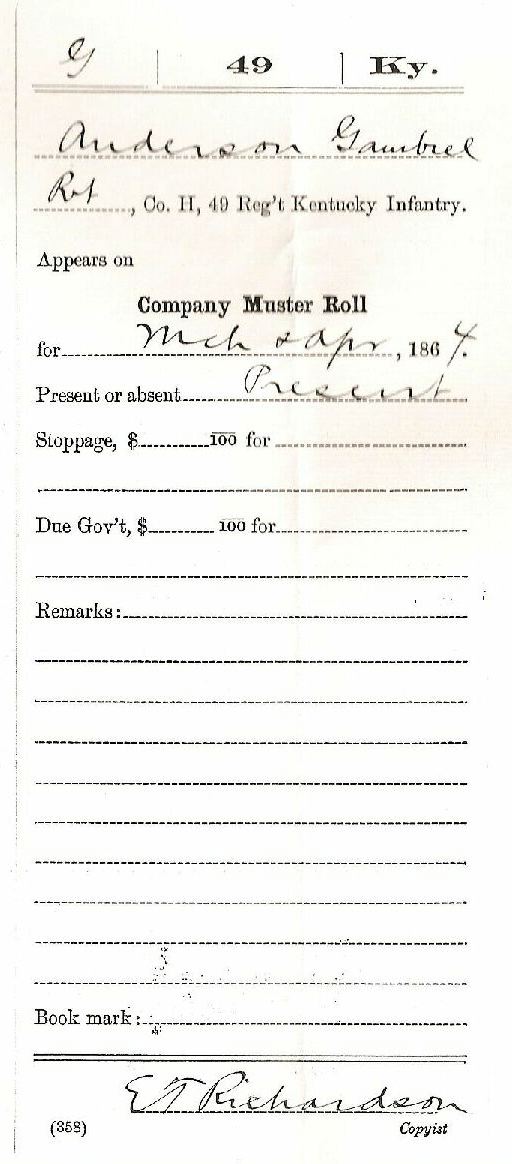 G | 49 | Ky.
Anderson Gambrel
Pvt, Co. H, 49 Reg't Kentucky Infantry.
Appears on
Company Muster Roll
for Mch & Apr, 1864.
Present or absent Present
Stoppage, $ 100 for
Due Gov't, $ 100 for
Remarks:
Book mark:
E T Richardson
(358) Copyist